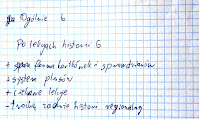 Ogólnie 6
Po lekcjach historii 6
+ forma kartkówek i sprawdzianów
+ system plusów
+ ciekawe lekcje
- trochę historii regionalnej